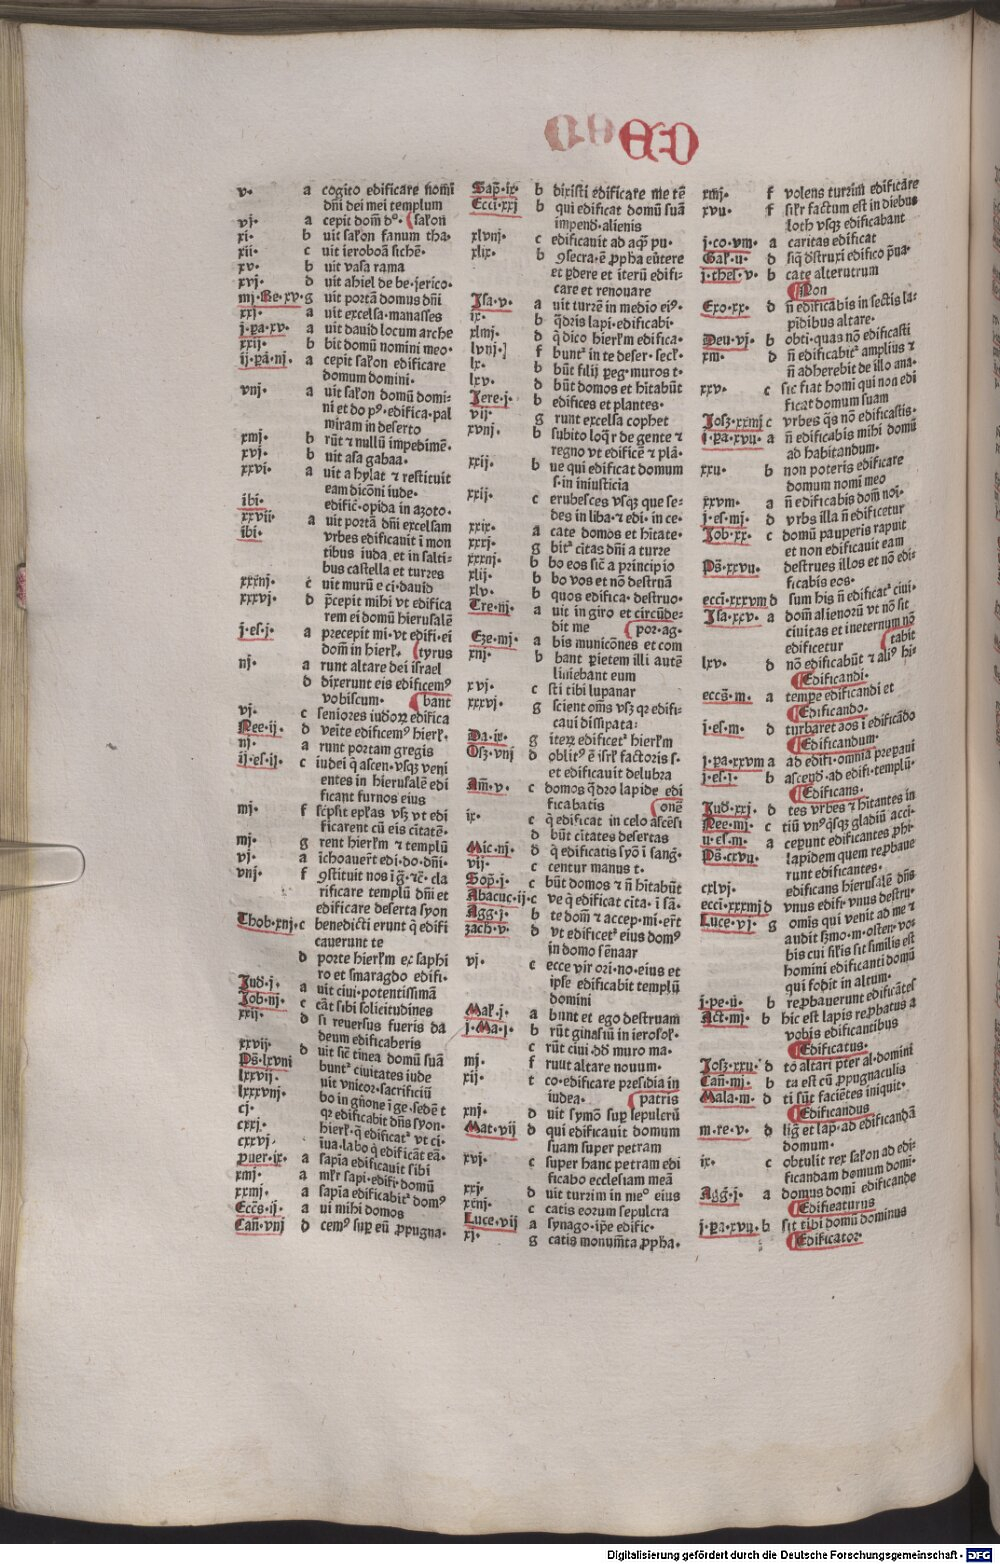 E D
v· a cogito edificare nomī
dn̄i dei mei templum
vj· a cepit dom̄ dº· salon
xi· b uit salon fanum tha·
xii· c uit ieroboā sichē·
xv· b uit vasa rama
xvj· d uit ahiel de be·jerico·
iiij·Re·xv· g uit portā domus dn̄i
xxi· a uit excelsa manasses
j·pa·xv· a uit dauid locum arche
xxij· b bit domū nomini meo·
ij·pa·iij· a cepit salon edificare
domum domini·
viij· a uit salon domū domi-
ni et do pꝰ·edifica·pal
miram in deserto
xiiij· b rūt ⁊ nullū impedimē·
xvj· b uit asa gabaa·
xxvi· a uit ahylat ⁊ restituit
eam dicōni iude·
ibi· edific̄·opida in azoto·
xxvii· a uit portā dn̄i excelsam
ibi· vrbes edificauit ī mon
tibus iuda et in salti-
bus castella et turres
xxxiij· c uit murū e ci·dauid
xxxvj· d p̄cepit mihi vt edifica
rem ei domū hierusalē
j·es·j· a precepit mi·vt edifi·ei
dom̄ in hierlꝭ· tyrus
iij· a runt altare dei israel
d dixerunt eis edificemꝰ
vobiscum· bant
vj· c seniores iudoꝝ edifica
Nee·ij· d venite edificemꝰ hierlꝭ·
iij· a runt portam gregis
ij·es·ij· c iudei q̄ ascen·vsqꝫ veni
entes in hierusalē edi
ficant furnos eius
iiij· f sc̄psit ep̄las vsꝫ vt edi
ficarent cū eis citatē·
iiij· g rent hierl̄m ⁊ templū
vj· a īchoauer̄t edi·do·dn̄i·
viij· f ꝯstituit nos īg̃·⁊c̄·cla
rificare templū dn̄i et
edificare deserta syon
Thob·xiij· c benedicti erunt q̄ edifi
cauerunt te
d porte hierl̄m ex saphi
ro et smaragdo edifi·
Jud·j· a uit ciui·potentissimā
Job·iij· c cāt sibi solicitudines
xxij· d si reuersus fueris da
deum edificaberis
xxvij· d uit sic̄ tinea domū suā
Ps̄·lxviij bunt' ciuitates iude
lxxvij· uit vnicor·sacrificiū
lxxxviij· bo in gn̄one īge·sedē t
cj· qꝛ edificabit dn̄s syon·
cxxj· hierlꝭ·q̄ edificatꝰ vt ci·
cxxvj· īua·labo q̄ edificāt eā·
puer·ix· a sapīa edificauit sibi
xiiij· a ml̄r sapi·edifi·domū
xxiiij· a sapīa edificabit' domꝰ
Ecc̄s·ij· a ui mihi domos
Can̄·viij d cemꝰ suꝑ eū ꝓpugna·
Sap̄·ix· b dixisti edificare me tē
Ecci·xxj b qui edificat domū suā
impend·alienis
xlviij· c edificauit ad aq̄ pu·
xlix· b ꝯsecra·ē ꝓpha eūtere
et ꝑdere et iterū edifi-
care et renouare
Isa·v· a uit turrē in medio eiꝰ·
ix· b q̄dris lapi·edificabi·
xliiij· d q̄ dico hierl̄m edifica·
lviij·] f bunt' in te deser·seclꝭ·
lx· b būt filij ꝑeg·muros t·
lxv· d būt domos et hītabūt
Jere·j· b edifices et plantes·
vij· g runt excelsa cophet
xviij· b subito loq̄r de gente ⁊
regno vt edificē ⁊ plā·
xxij· b ue qui edificat domum
s·in iniusticia
xxij· c erubesces vsqꝫ que se-
des in liba·⁊ edi·in ce·
xxix· a cate domos et hītate·
xxxj· g bit' citas dn̄i a turre
xxxiij· b bo eos sic̄ a principio
xlij· b bo vos et nō destruā
xlv· b quos edifica·destruo·
Tre·iij· a uit in giro et circūde-
dit me por·ag·
Eze·iiij· a bis municōnes et com
xiij· b bant ꝑietem illi autē
liniebant eum
xvj· c sti tibi lupanar
xxxvj· g scient om̄s vsꝫ qꝛ edifi-
caui dissipata:
Da·ix· g iteꝝ edificet' hierl̄m
Osꝫ·viij d oblitꝰ ē isrl̄ factoris s·
et edificauit delubra
Am̄·v· c domos q̄dro lapide edi
ficabatis onē
ix· c q̄ edificat in celo ascēsi
d būt citates desertas
Mic·iij· d q̄ edificatis syō ī sang̃·
vij· c centur manus t·
Sop̄·j· c būt domos ⁊ n̄ hītabūt
Abacuc·ij· c ve q̄ edificat cita·ī sā·
Agg·j· b te dom̄ ⁊ accep·mi·er̄t
zach·v· d vt edificet' eius domꝰ
in domo sēnaar
vj· c ecce vir ori·no·eius et
ipse edificabit templū
domini
Mal·j· a bunt et ego destruam
j·Ma·j· b rūt ginasiū in ierosol·
c rūt ciui·dd̄ muro ma·
iiij· f ruut altare nouum·
xij· t co·edificare presidia in
iudea· patris
xiij· d uit symō suꝑ sepulcrū
Mat·vij d qui edificauit domum
suam super petram
xvj· c super hanc petram edi
ficabo ecclesiam meā
xxj· d uit turrim in meº eius
xxiij· c catis eorum sepulcra
Luce·vij a synago·ip̄e edific·
xj· g catis monum̄ta ꝓpha·
xiiij· f volens turrim edificare
xvii· f sil̄r factum est in diebus
loth vsqꝫ edificabant
j·co·viij· a caritas edificat
Gal·ii· d siq̄ dstruxi edifico p̄ua·
j·thes̄·v· b cate alterutrum
Non
Exo·xx· d n̄ edificabis in sectis la-
pidibus altare·
Deu·vj· b obti·quas nō edificasti
xiij· d n̄ edificabit' amplius ⁊
n̄ adherebit de illo ana·
xxv· c sic fiat homi qui non edi
ficat domum suam
Josꝫ·xxiiij c vrbes q̄s nō edificastis·
j·pa·xvii· a n̄ edificabis mihi domū
ad habitandum·
xxii· b non poteris edificare
domum nomi meo
xxviij· a n̄ edificabis dom̄ noī·
j·es·iiij· d vrbs illa n̄ edificetur
Job·xx· c domū pauperis rapuit
et non edificauit eam
Ps̄·xxvii· destrues illos et nō edi-
ficabis eos·
ecci·xxxviij d sum his n̄ edificatꝰ ciui·
Isa·xxv· a dom̄ alienorū vt nō sit
ciuitas et ineternum nō
edificetur tabit
lxv· d nō edificabūt ⁊ aliꝰ hi-
Edificandi·
eccs̄·iij· a tempe edificandi et
Edificando·
j·es·iij· d turbaret' eos ī edificādo
Edificandum·
j·pa·xxviij a ad edifi·omnia preparaui
j·es·i· b ascend·ad edifi·templū·
Edificans·
Jud·xxj· d tes vrbes ⁊ hītantes in
Nee·iiij· c tiū vnꝰq̄sqꝫ gladiū acci·
ii·es·iij· a ceperunt edificantes ꝓphī·
Ps̄·cxvii· lapidem quem reꝓbaue
runt edificantes·
cxlvj· edificans hierusalē dn̄s
ecci·xxxiiij d vnus edifꝰ vnus destru·
Luce·vj· g omis qui venit ad me ⁊
audit sꝫmo·m·osten·vo-
bis cui silis sit similis est
homini edificanti domū
qui fodit in altum·
j·pe·ii· b reꝓbauerunt edificātes
Act·iiij· b hic est lapis reꝓbatus a
vobis edificantibus
Edificatus·
Josꝫ·xxii· d tō altari pter al·domini
Can̄·iiij· b ta est cū ꝓpugnaculis
Mala·iij· d ti sūt faciētes iniquit·
Edificandus
iii·re·v· d lig̃ et lap·ad edificandā
domum·
ix· c obtulit rex salon ad edi-
ficandam domum domi·
Agg·j· a domus domī edificande
Edificaturus
j·pa·xvii· b sit tibi domū dominus
Edificator·
Digitalisierung gefördert durch die Deutsche Forschungsgemeinschaft · DFG